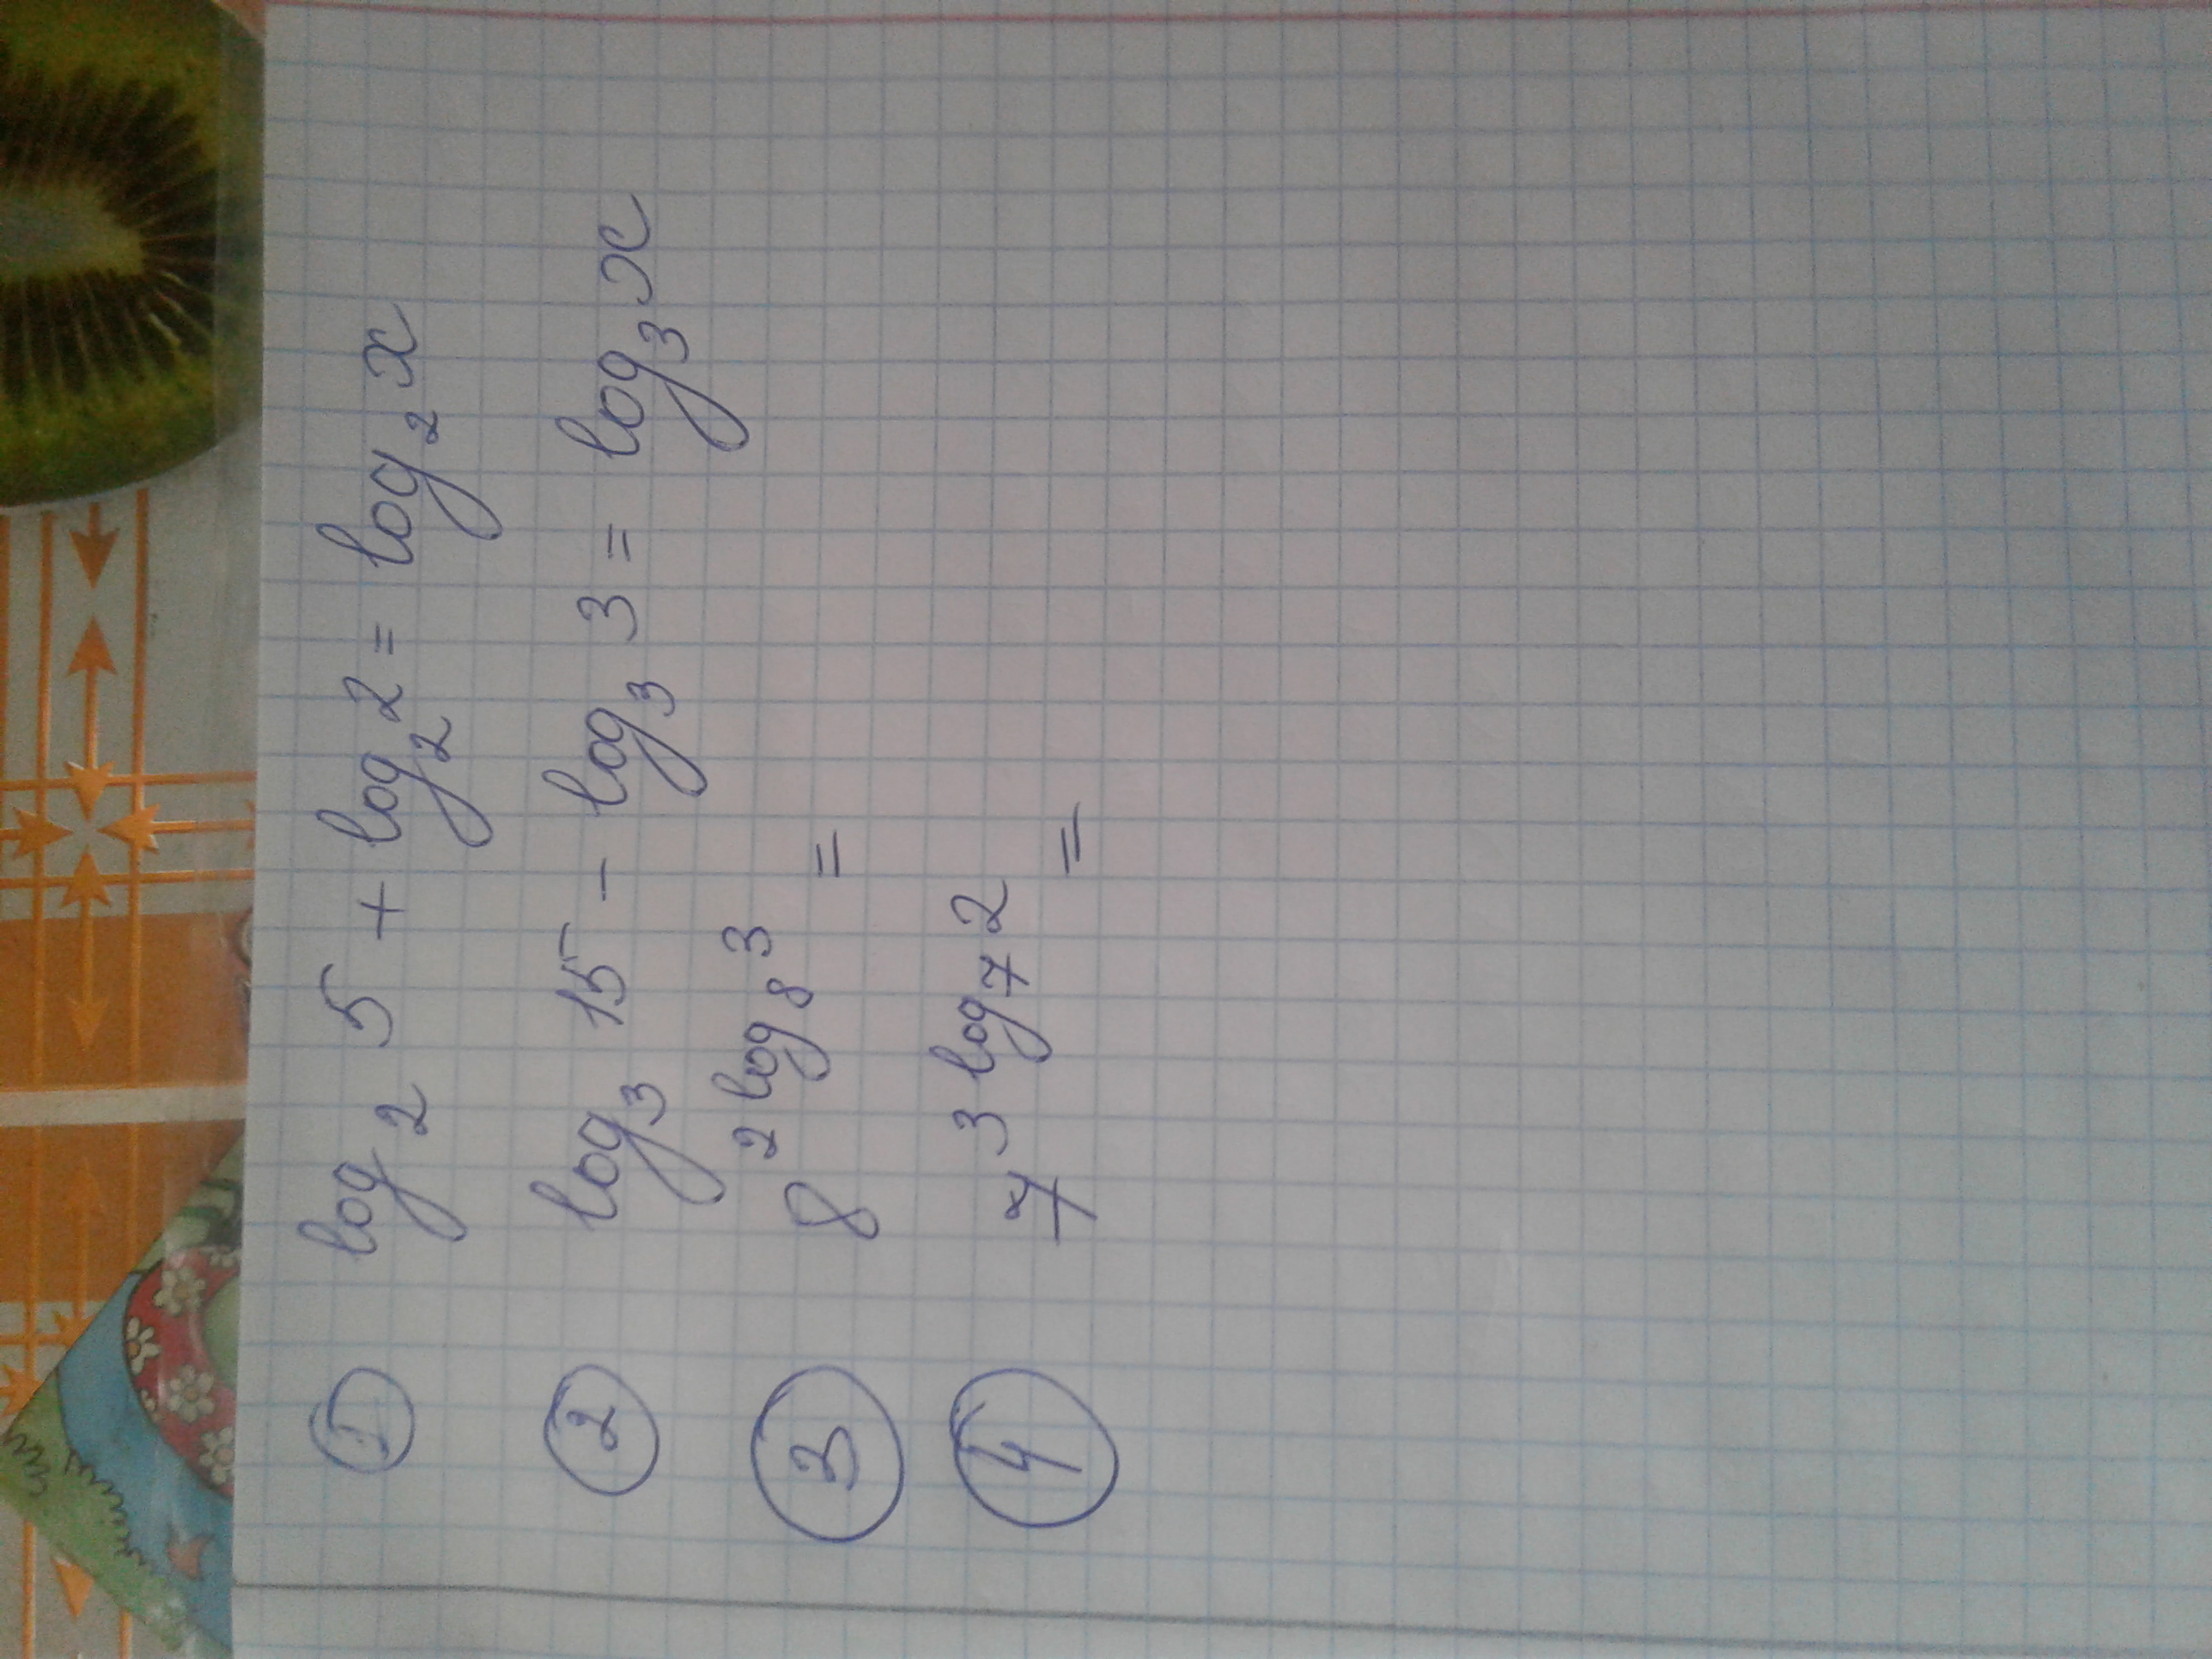 ① log₂ 5 + log₂ 2 = log₂ x
② log₃ 15 - log₃ 3 = log₃ x
③ 8^(2 log₈ 3) =
④ 7^(3 log₇ 2) =